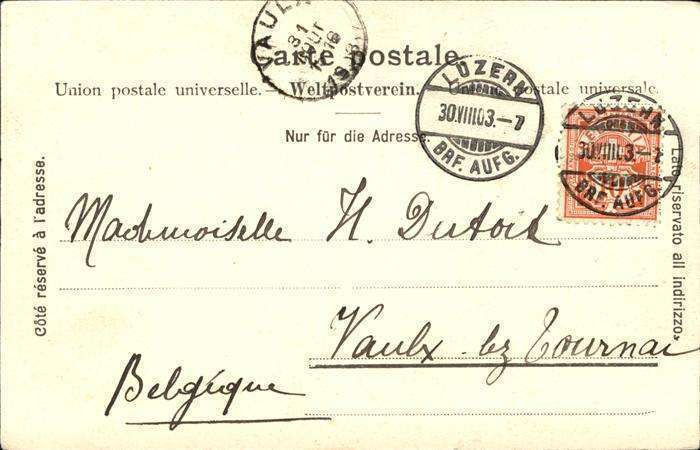 VAULX
31
AOUT
18
19
Carte postale.
Union postale universelle. — Weltpostverein. — Unione postale universale.
Nur für die Adresse.
LUZERN
30.VIII.03.–7
BRF. AUFG.
LUZERN
30.VIII.03.–7
BRF. AUFG.
Côté réservé à l'adresse.
Lato riservato all indirizzo.
Mademoiselle H. Dutoit
Vaulx lez Tournai
Belgique